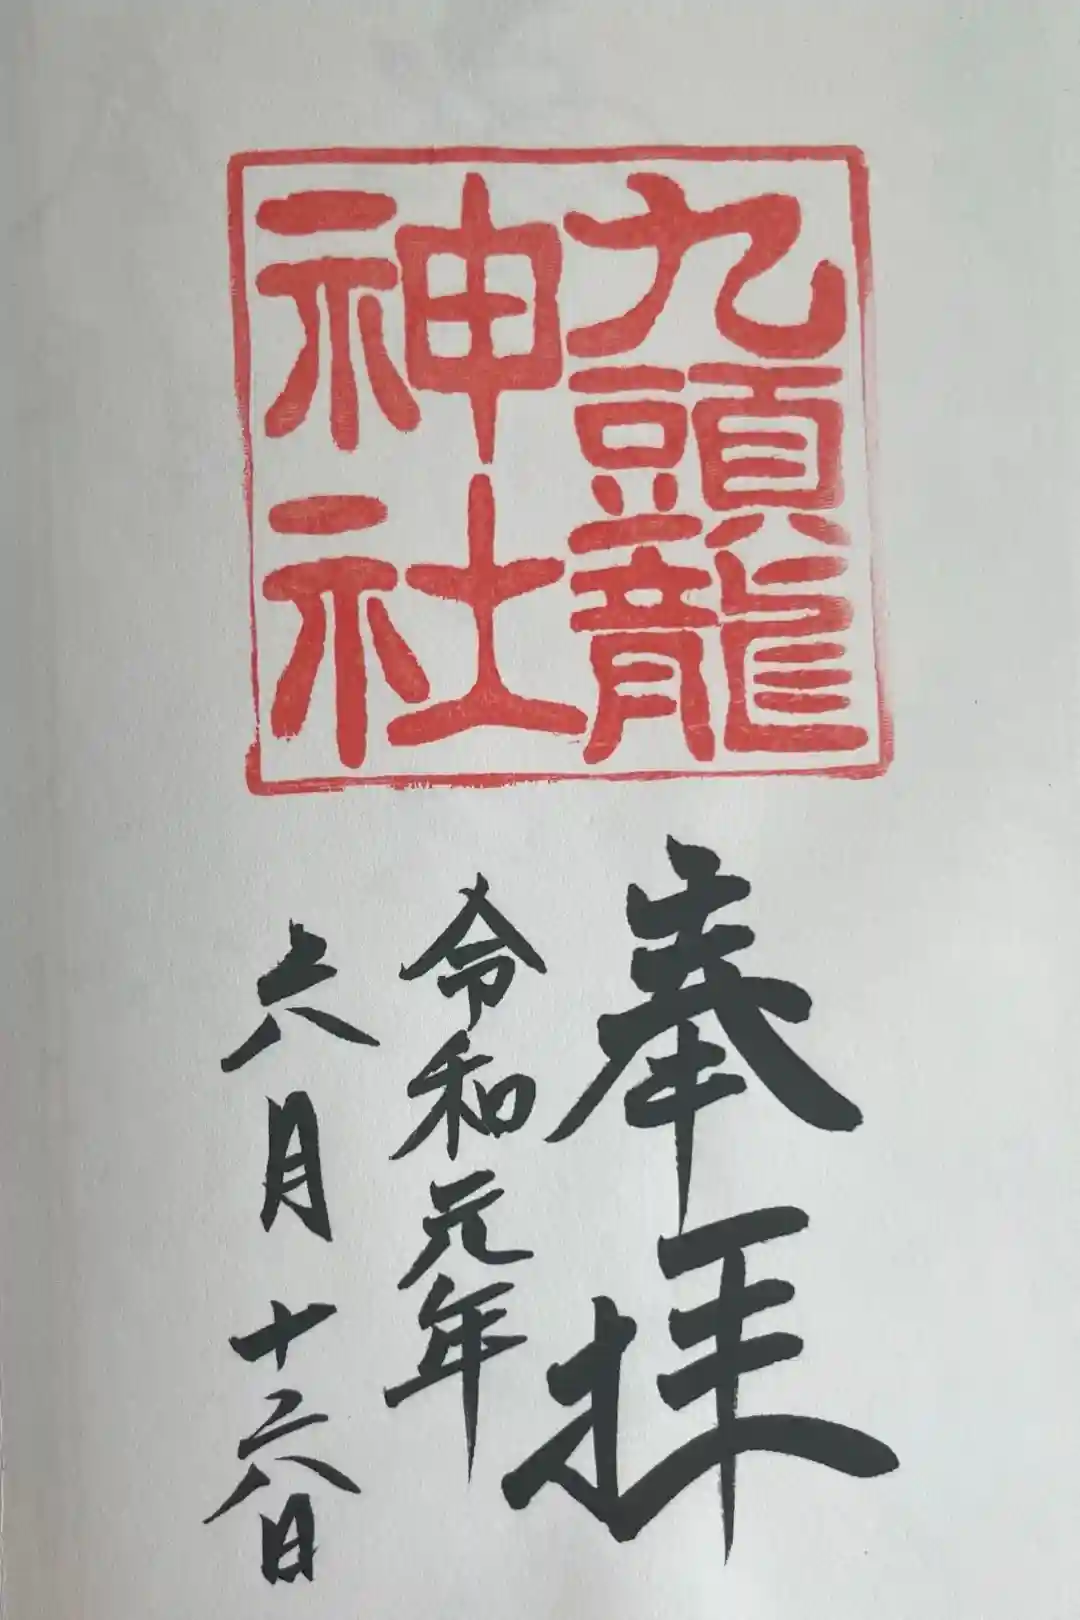 九頭龍
神社
奉拝
令和元年
六月十六日